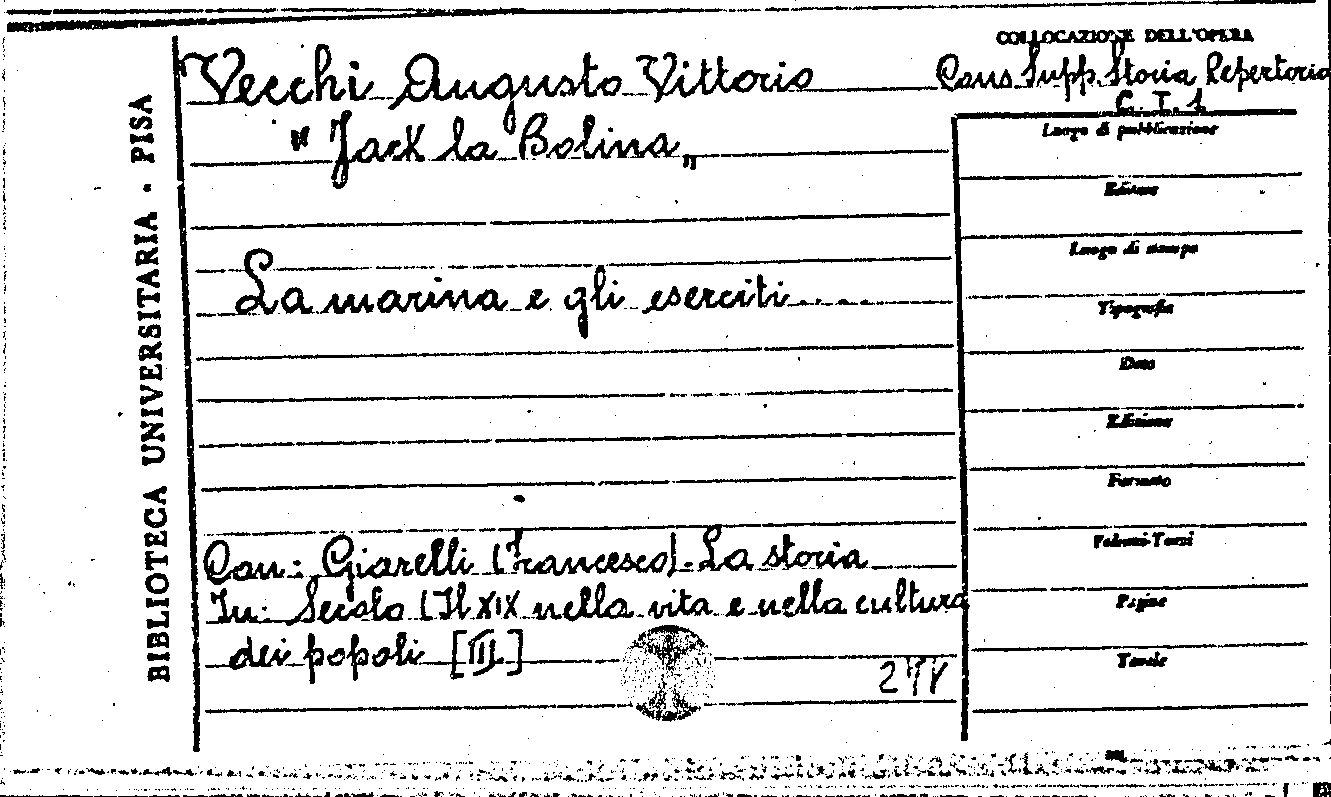 COLLOCAZIONE DELL'OPERA
Vecchi Augusto Vittorio
Cons. Supp. Storia Repertorio
C. T. 1
" Jack la Bolina „
Luogo di pubblicazione
Editore
Luogo di stampa
La marina e gli eserciti.....
Tipografia
Data
Edizione
Formato
Volumi-Tomi
Con: Giarelli (Francesco). La storia
In: Secolo (Il XIX nella vita e nella cultura
Pagine
dei popoli [III.]
Tavole
BIBLIOTECA UNIVERSITARIA - PISA